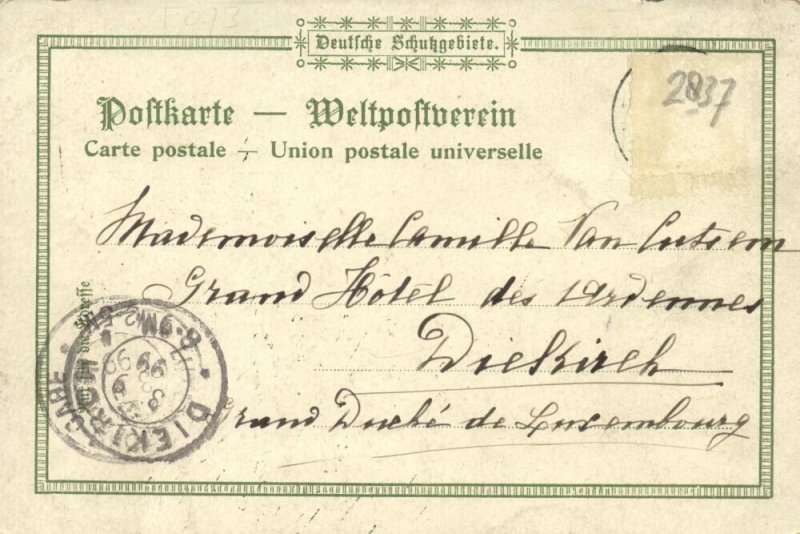 Deutsche Schutzgebiete.
2837
Postkarte — Weltpostverein
Carte postale — Union postale universelle
Mademoiselle Camille Van Cutsem
Grand Hôtel des Ardennes
Diekirch
Grand Duché de Luxembourg
Nur für die Adresse
DIEKIRCH
GARE